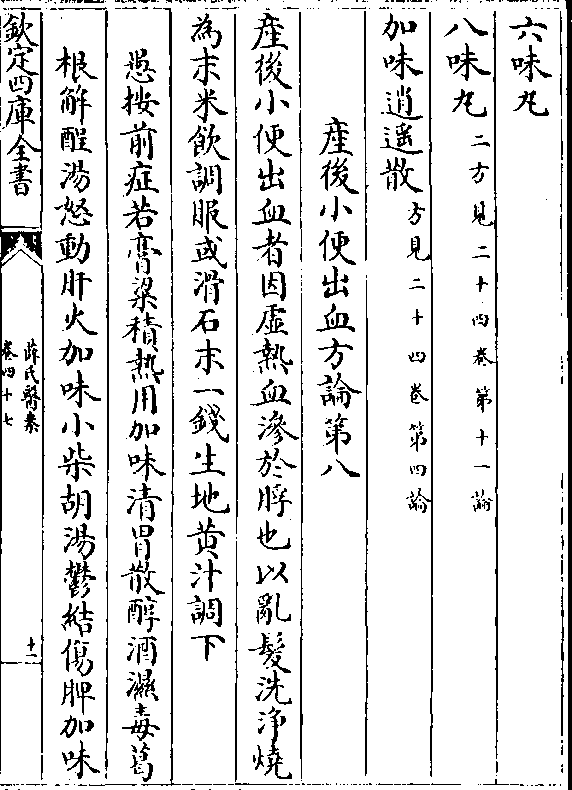 六味丸
八味丸二方見二十四卷第十一論
加味逍遥散方見二十四卷第四論
産後小便出血方論第八
産後小便出血者因虚熱血滲於脬也以亂髮洗淨燒
為末米飲調服或滑石末一錢生地黄汁調下
愚按前症若膏粱積熱用加味清胃散醇酒濕毒葛
根解酲湯怒動肝火加味小柴胡湯鬱結傷脾加味
欽定四庫全書
薛氏醫案
卷四十七
十一